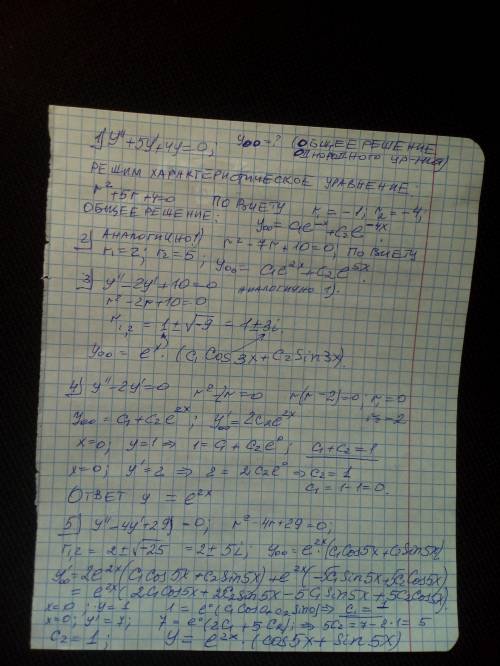 1) y''+5y'+4y=0; yоо=? (ОБЩЕЕ РЕШЕНИЕ
ОДНОРОДНОГО УР-НИЯ)
РЕШИМ ХАРАКТЕРИСТИЧЕСКОЕ УРАВНЕНИЕ:
r²+5r+4=0 ПО ВИЕТУ r₁=-1; r₂=-4;
ОБЩЕЕ РЕШЕНИЕ: yоо=C₁e^-x+C₂e^-4x.
2) АНАЛОГИЧНО 1) r²-7r+10=0, ПО ВИЕТУ
r₁=2; r₂=5; yоо=C₁e^2x+C₂e^5x
3) y''-2y'+10=0 АНАЛОГИЧНО 1).
r²-2r+10=0
r₁,₂=1±√-9=1±3i.
yоо=e^x·(C₁cos3x+C₂sin3x).
4) y''-2y'=0 r²-2r=0 r(r-2)=0; r₁=0
r₂=2
yоо=C₁+C₂e^2x; y'оо=2C₂e^2x
x=0; y=1 ⇒ 1=C₁+C₂e⁰; C₁+C₂=1
x=0; y'=2 ⇒ 2=2C₂e⁰ ⇒ C₂=1
C₁=1-1=0.
ОТВЕТ y=e^2x
5) y''-4y'+29y=0; r²-4r+29=0;
r₁,₂=2±√-25=2±5i; yоо=e^2x(C₁cos5x+C₂sin5x)
y'оо=2e^2x(C₁cos5x+C₂sin5x)+e^2x(-5C₁sin5x+5C₂cos5x)
=e^2x(2C₁cos5x+2C₂sin5x-5C₁sin5x+5C₂cos5x)
x=0; y=1 1=e⁰(C₁cos0+C₂sin0) ⇒ C₁=1
x=0; y'=7; 7=e⁰(2C₁+5C₂); ⇒ 5C₂=7-2·1=5
C₂=1; y=e^2x·(cos5x+sin5x)